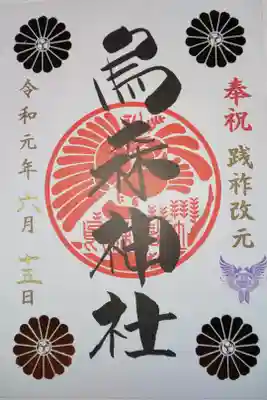 奉祝 践祚改元
烏森神社
令和元年 六月 十五日